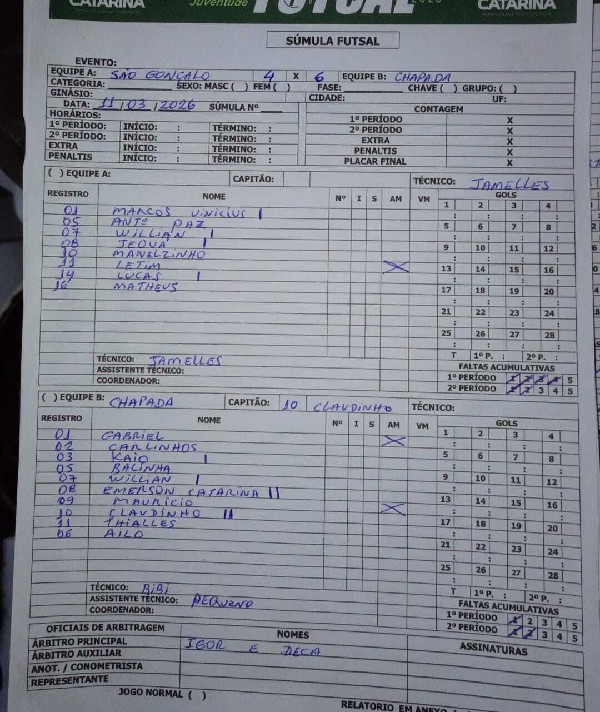 CATARINA Juventude FUTSAL CATARINA
SÚMULA FUTSAL
EVENTO:
EQUIPE A: SÃO GONÇALO 4 X 6 EQUIPE B: CHAPADA
CATEGORIA: SEXO: MASC ( ) FEM ( ) FASE: CHAVE ( ) GRUPO: ( )
GINÁSIO: CIDADE: UF:
DATA: 11/03/2026 SÚMULA Nº
CONTAGEM
HORÁRIOS:
1º PERÍODO: INÍCIO: : TÉRMINO: : 1º PERÍODO X
2º PERÍODO: INÍCIO: : TÉRMINO: : 2º PERÍODO X
EXTRA INÍCIO: : TÉRMINO: : EXTRA X
PENALTIS INÍCIO: : TÉRMINO: : PENALTIS X
PLACAR FINAL X
( ) EQUIPE A: CAPITÃO: TÉCNICO: JAMELLES
REGISTRO NOME Nº I S AM VM GOLS
01 MARCOS VINICIUS I
05 ANTº PAZ
07 WILLIAN I
08 JEOVÁ I
10 MANELZINHO
11 LETIM X
14 LUCAS I
16 MATHEUS
1 2 3 4
: : : :
5 6 7 8
: : : :
9 10 11 12
: : : :
13 14 15 16
: : : :
17 18 19 20
: : : :
21 22 23 24
: : : :
25 26 27 28
: : : :
T 1º P. : 2º P. :
TÉCNICO: JAMELLES
ASSISTENTE TÉCNICO:
COORDENADOR:
FALTAS ACUMULATIVAS
1º PERÍODO 1 2 3 4 5
2º PERÍODO 1 2 3 4 5
( ) EQUIPE B: CHAPADA CAPITÃO: 10 CLAUDINHO TÉCNICO:
REGISTRO NOME Nº I S AM VM GOLS
01 GABRIEL X
02 CARLINHOS
03 KAIO I
05 BALINHA
07 WILLIAN I
08 EMERSON CATARINA II
09 MAURICIO
10 CLAUDINHO II X
11 THIALLES
06 AILO
1 2 3 4
: : : :
5 6 7 8
: : : :
9 10 11 12
: : : :
13 14 15 16
: : : :
17 18 19 20
: : : :
21 22 23 24
: : : :
25 26 27 28
: : : :
T 1º P. : 2º P. :
TÉCNICO: BIBI
ASSISTENTE TÉCNICO: PEQUENO
COORDENADOR:
FALTAS ACUMULATIVAS
1º PERÍODO 1 2 3 4 5
2º PERÍODO 1 2 3 4 5
OFICIAIS DE ARBITRAGEM NOMES ASSINATURAS
ÁRBITRO PRINCIPAL IGOR E DECA
ÁRBITRO AUXILIAR
ANOT. / CONOMETRISTA
REPRESENTANTE
JOGO NORMAL ( ) RELATORIO EM ANEXO